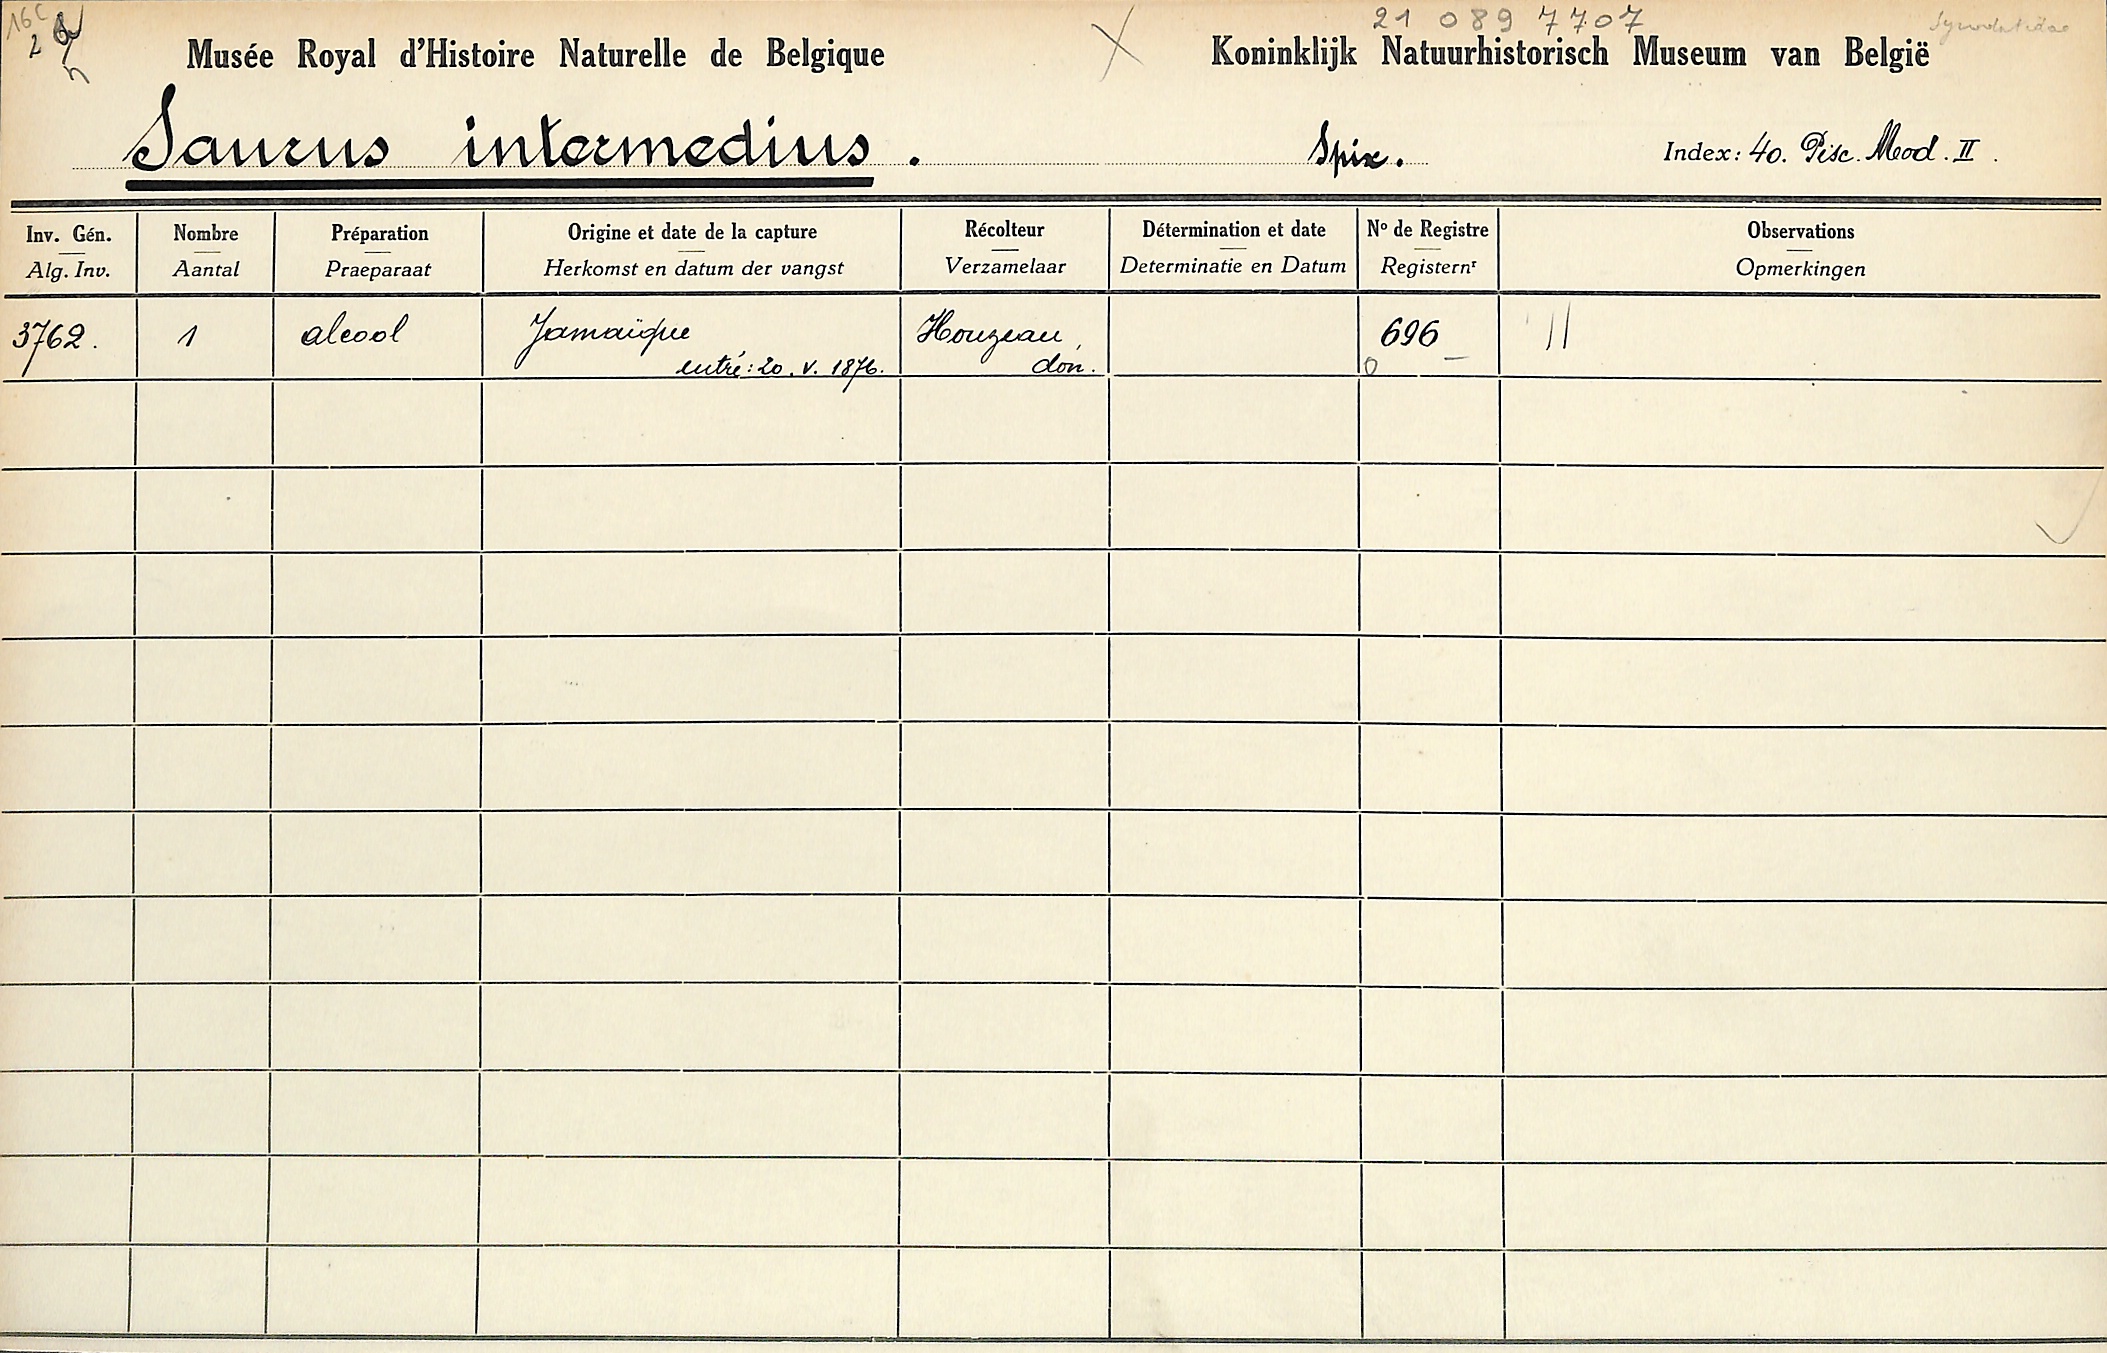 16C 21 089 7707 Synodontidae
2
Musée Royal d'Histoire Naturelle de Belgique X Koninklijk Natuurhistorisch Museum van België
Saurus intermedius. Spix. Index: 40. Pisc. Mod. II.
Inv. Gén. Nombre Préparation Origine et date de la capture Récolteur Détermination et date Nº de Registre Observations
Alg. Inv. Aantal Praeparaat Herkomst en datum der vangst Verzamelaar Determinatie en Datum Registernʳ Opmerkingen
3762. 1 alcool Jamaïque Houzeau, 696 //
entré: 20. V. 1876. don. 0 –